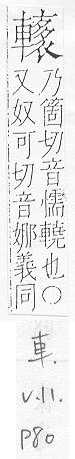 乃箇切音儒也○
又奴可切音娜義同
車.
V.11.
P80